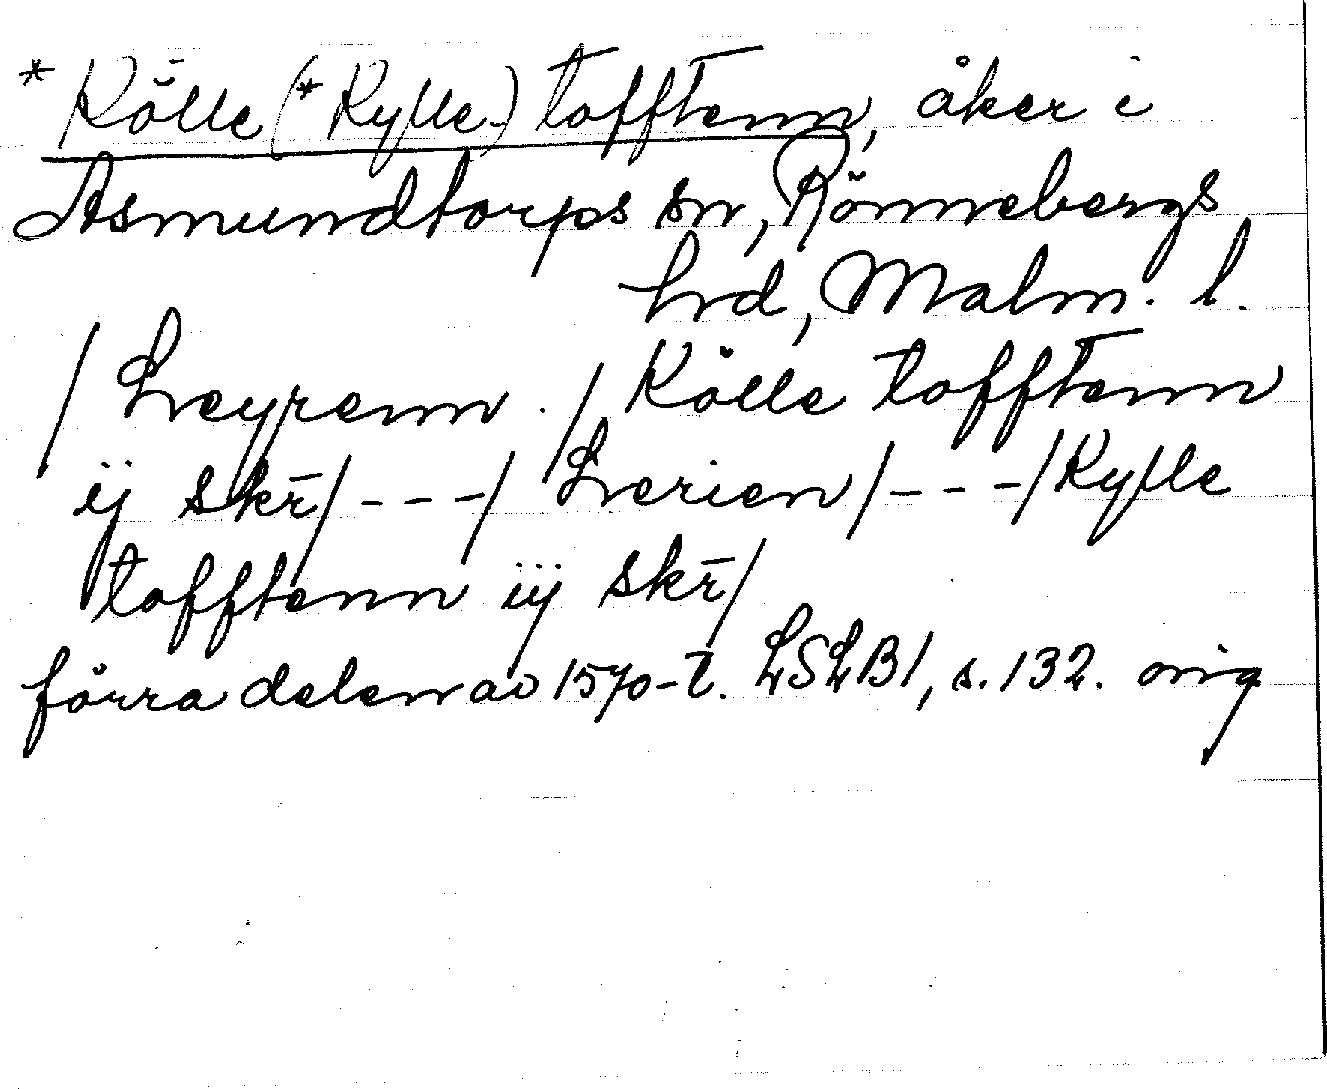 *Kölle (*Kylle-) tofftenn, åker i
Asmundtorps sn, Rönnebergs
hrd, Malm. l.
/ Heyrenn . / Kölle tofftenn
ij skr̄ / - - - / Herien / - - - / Kylle
tofftenn iij skr̄ /
förra delen av 1570-t. LSLB1, s. 132. orig